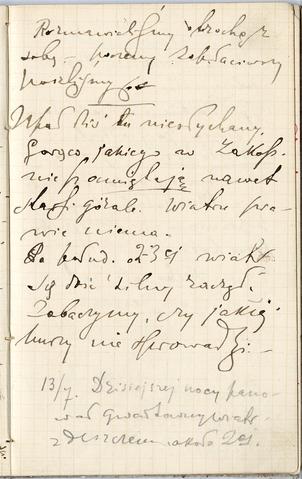 Rozmawialiśmy trochę z
sobą – potem
poszliśmy
Upał dziś tu niesłychany.
Gorąco jakiego w Zakop.
nie pamiętają nawet
starzi górale. Wiatru pra-
wie niema.
Po połud. o 2–3 ej wiatr
się dość silny zaczął.
Zobaczymy, czy jakiej
burzy nie sprowadzi. –
13/7. Dzisiejszej nocy pano-
wał gwałtowny wiatr
z deszczem około 2ej.